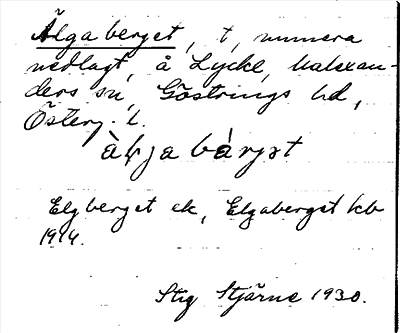 Älgaberget, t, numera
nedlagt, å Lycke, Valexan-
ders sn, Göstrings hd,
Österg. l.
Elgberget ek, Elgaberget kb
1914.
Stig Stjärne 1930.